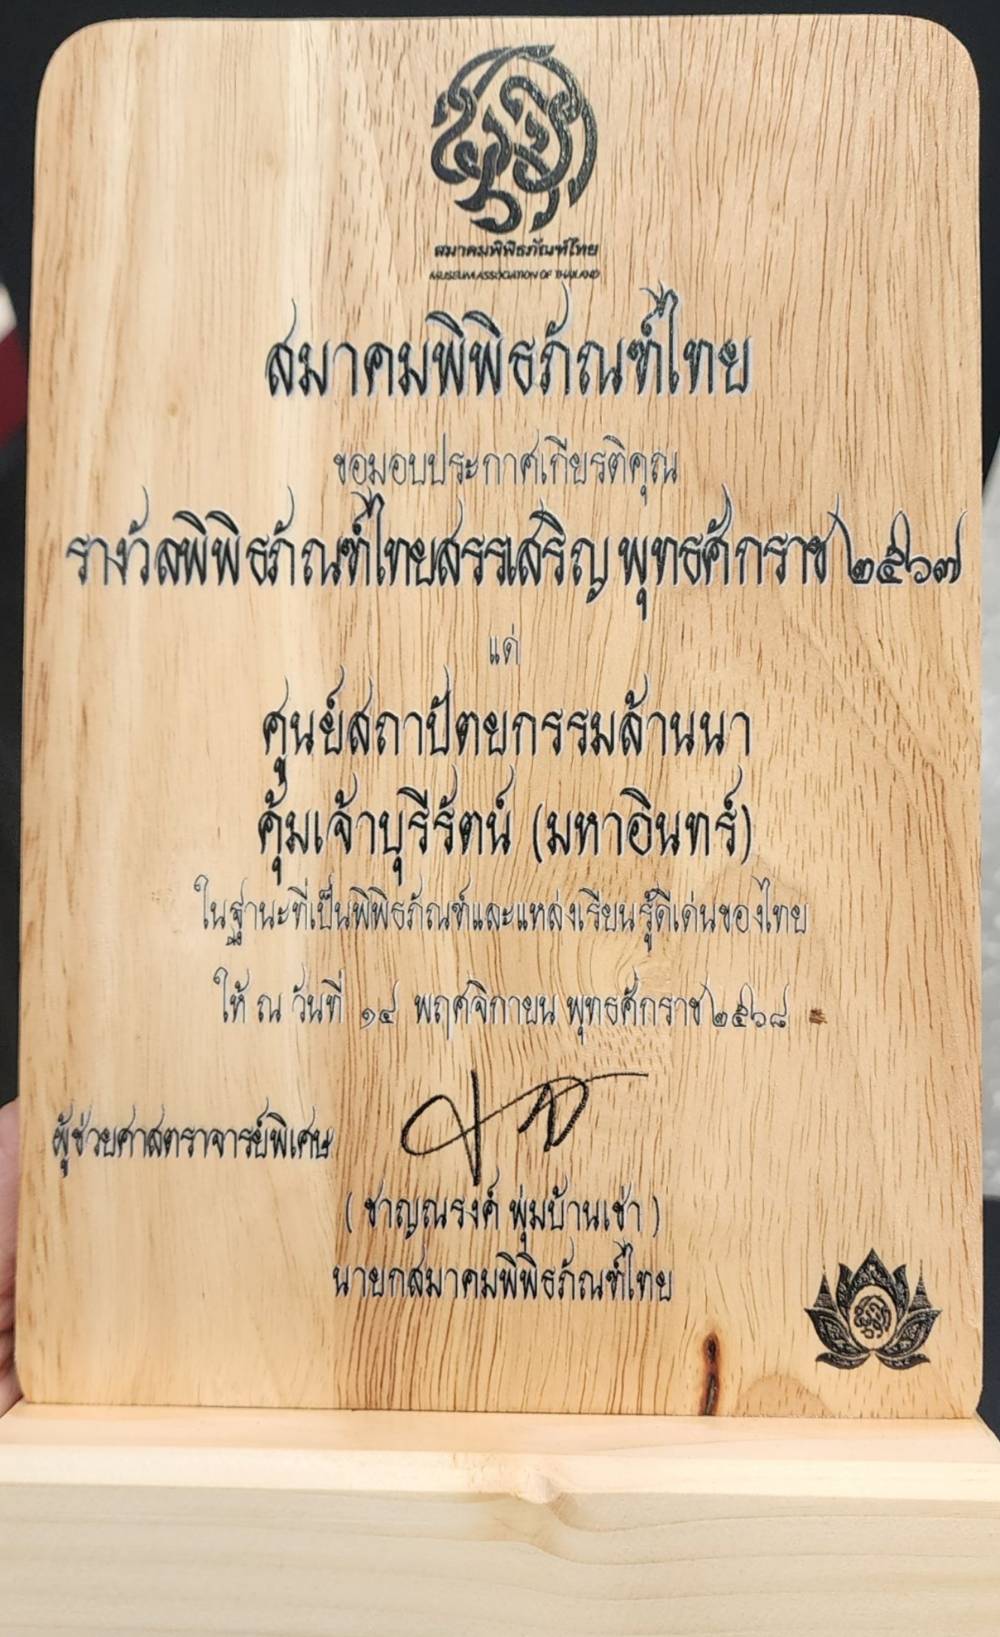 สมาคมพิพิธภัณฑ์ไทย
MUSEUM ASSOCIATION OF THAILAND
สมาคมพิพิธภัณฑ์ไทย
ขอมอบประกาศเกียรติคุณ
รางวัลพิพิธภัณฑ์ไทยสรรเสริญ พุทธศักราช ๒๕๖๗
แด่
ศูนย์สถาปัตยกรรมล้านนา
คุ้มเจ้าบุรีรัตน์ (มหาอินทร์)
ในฐานะที่เป็นพิพิธภัณฑ์และแหล่งเรียนรู้ดีเด่นของไทย
ให้ ณ วันที่ ๑๔ พฤศจิกายน พุทธศักราช ๒๕๖๘
ผู้ช่วยศาสตราจารย์พิเศษ
( ชาญณรงค์ พุ่มบ้านเช่า )
นายกสมาคมพิพิธภัณฑ์ไทย